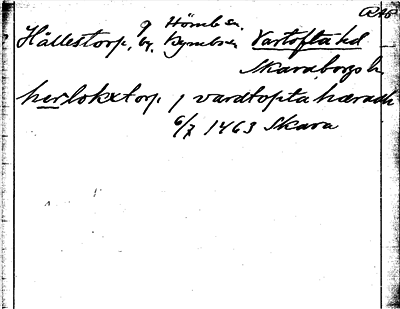 Hällestorp, by.
Vartofta hd
Skaraborgs l.
herlokxtorp j vardtopta hæradh
6/7 1463 Skara